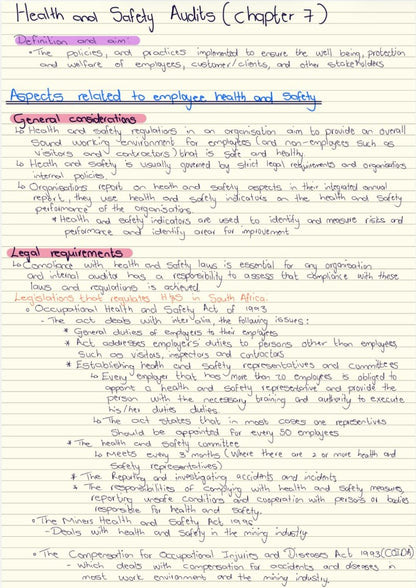 Health and Safety Audits (chapter 7)
Definition and aim:
• The policies, and practices implemented to ensure the well being, protection
and welfare of employees, customer/clients, and other stakeholders
Aspects related to employee health and Safety
General considerations
↳ Health and safety regulations in an organisation aim to provide an overall
Sound working environment for employees (and non-employees such as
visitors and contractors) that is safe and healthy.
↳ Health and safety is usually governed by strict legal requirements and organisations
internal policies.
↳ Organisations report on health and safety aspects in their integrated annual
report, they use health and safety indicators on the health and safety
performance of the organisations.
* Health and safety indicators are used to identify and measure risks and
performance and identify areas for improvement
Legal requirements
↳ Compliance with health and safety laws is essential for any organisation
and internal auditor has a responsibility to assess that compliance with these
laws and regulations is achieved.
Legislations that regulates H&S in South Africa:
○ Occupational Health and Safety Act of 1993
- The act deals with inter alia the following issues:
* General duties of employers to their employees
* Act addresses employer's duties to persons other than employees,
Such as visitors, inspectors and contractors
* Establishing health and safety representatives and committees
↳ Every employer that has more than 20 employees is obliged to
appoint a health and safety representative and provide the
person with the necessary training and authority to execute
his/her duties duties.
↳ The act states that in most cases one representives
Should be appointed for every 50 employees
* The health and safety committee
↳ Meets every 3 months (Where there are 2 or more health and
Safety representatives)
* The Reporting and investigating accidents and incidents
* The responsibilities of complying with health and safety measures,
reporting unsafe conditions and cooperation with persons or bodies
responsible for health and safety.
○ The Miners Health and Safety Act 1996
- Deals with health and safety in the mining industry
○ The Compensation for Occupational Injuries and Diseases Act 1993 (COIDA)
- Which deals with compensation for accidents and diseases in
most work environment and the mining industry.